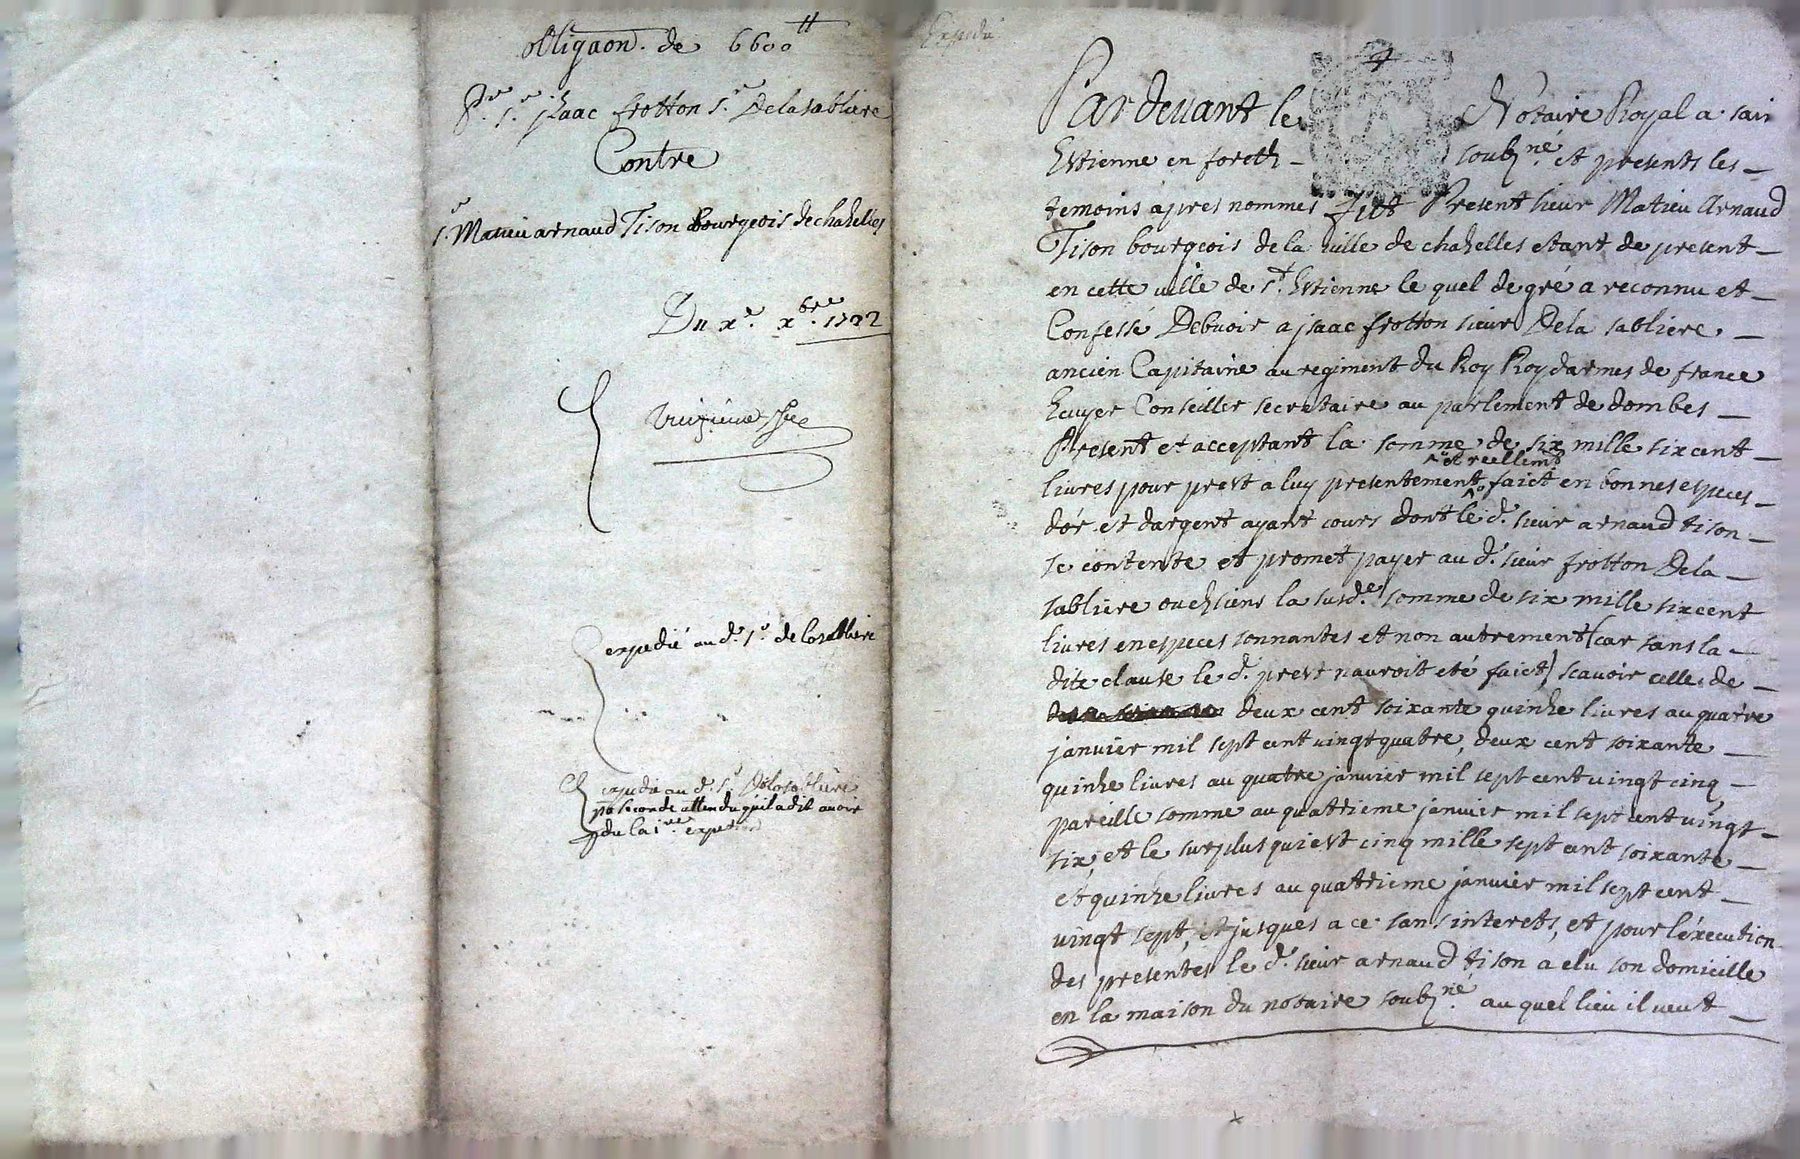 obligaon. de 6600 ₶
Pr. sr. jzaac frotton sr. Delasabliere
Contre
sr. Matieu arnaud Tison bourgeois de chazelles
Du xe. xbre. 1722
expedié au d. sr. de lasabliere
expedié au d. sr. Delasabliere
po seconde attendu quil a dit avoir
pdu la 1re. exped
Expedié
Pardevant le Notaire Royal a sain
Estienne en foretz - soubzné. et presents les -
temoins apres nommés fut Present sieur Matieu Arnaud
Tison bourgeois de la ville de chazelles etant de present -
en cette ville de st. Estienne le quel de gré a reconnu et -
Confessé Debvoir a jsaac frotton sieur Dela sabliere -
ancien Capitaine au regiment du Roy Roy darmes de france
Ecuyer Conseiller secretaire au parlement de dombes -
Present et acceptant la somme de six mille six cent -
et reellemt
livres pour prest a luy presentement faict en bonnes especes -
dór et dargent ayant cours dont le d. sieur arnaud tison -
se contente et promet payer au d. sieur frotton Dela -
sabliere ou es siens la susde. somme de six mille six cent
livres en especes sonnantes et non autrement (car sans la -
dite clause le d. prest nauroit eté faict) scavoir celle de -
deux cent soixante quinze livres au quatre
janvier mil sept cent vingt quatre, deux cent soixante -
quinze livres au quatre janvier mil sept cent vingt cinq -
pareille somme au quatrieme janvier mil sept cent vingt -
six, et le surplus qui est cinq mille sept cent soixante -
et quinze livres au quatrieme janvier mil sept cent -
vingt sept, et jusques a ce sans interets, et pour léxecution
des presentes le d. sieur arnaud tison a elu son domicille
en la maison du notaire soubzné. au quel lieu il veut -